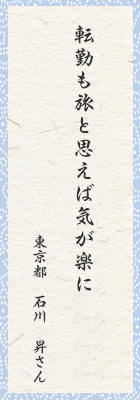 転勤も旅と思えば気が楽に
東京都 石川 昇さん